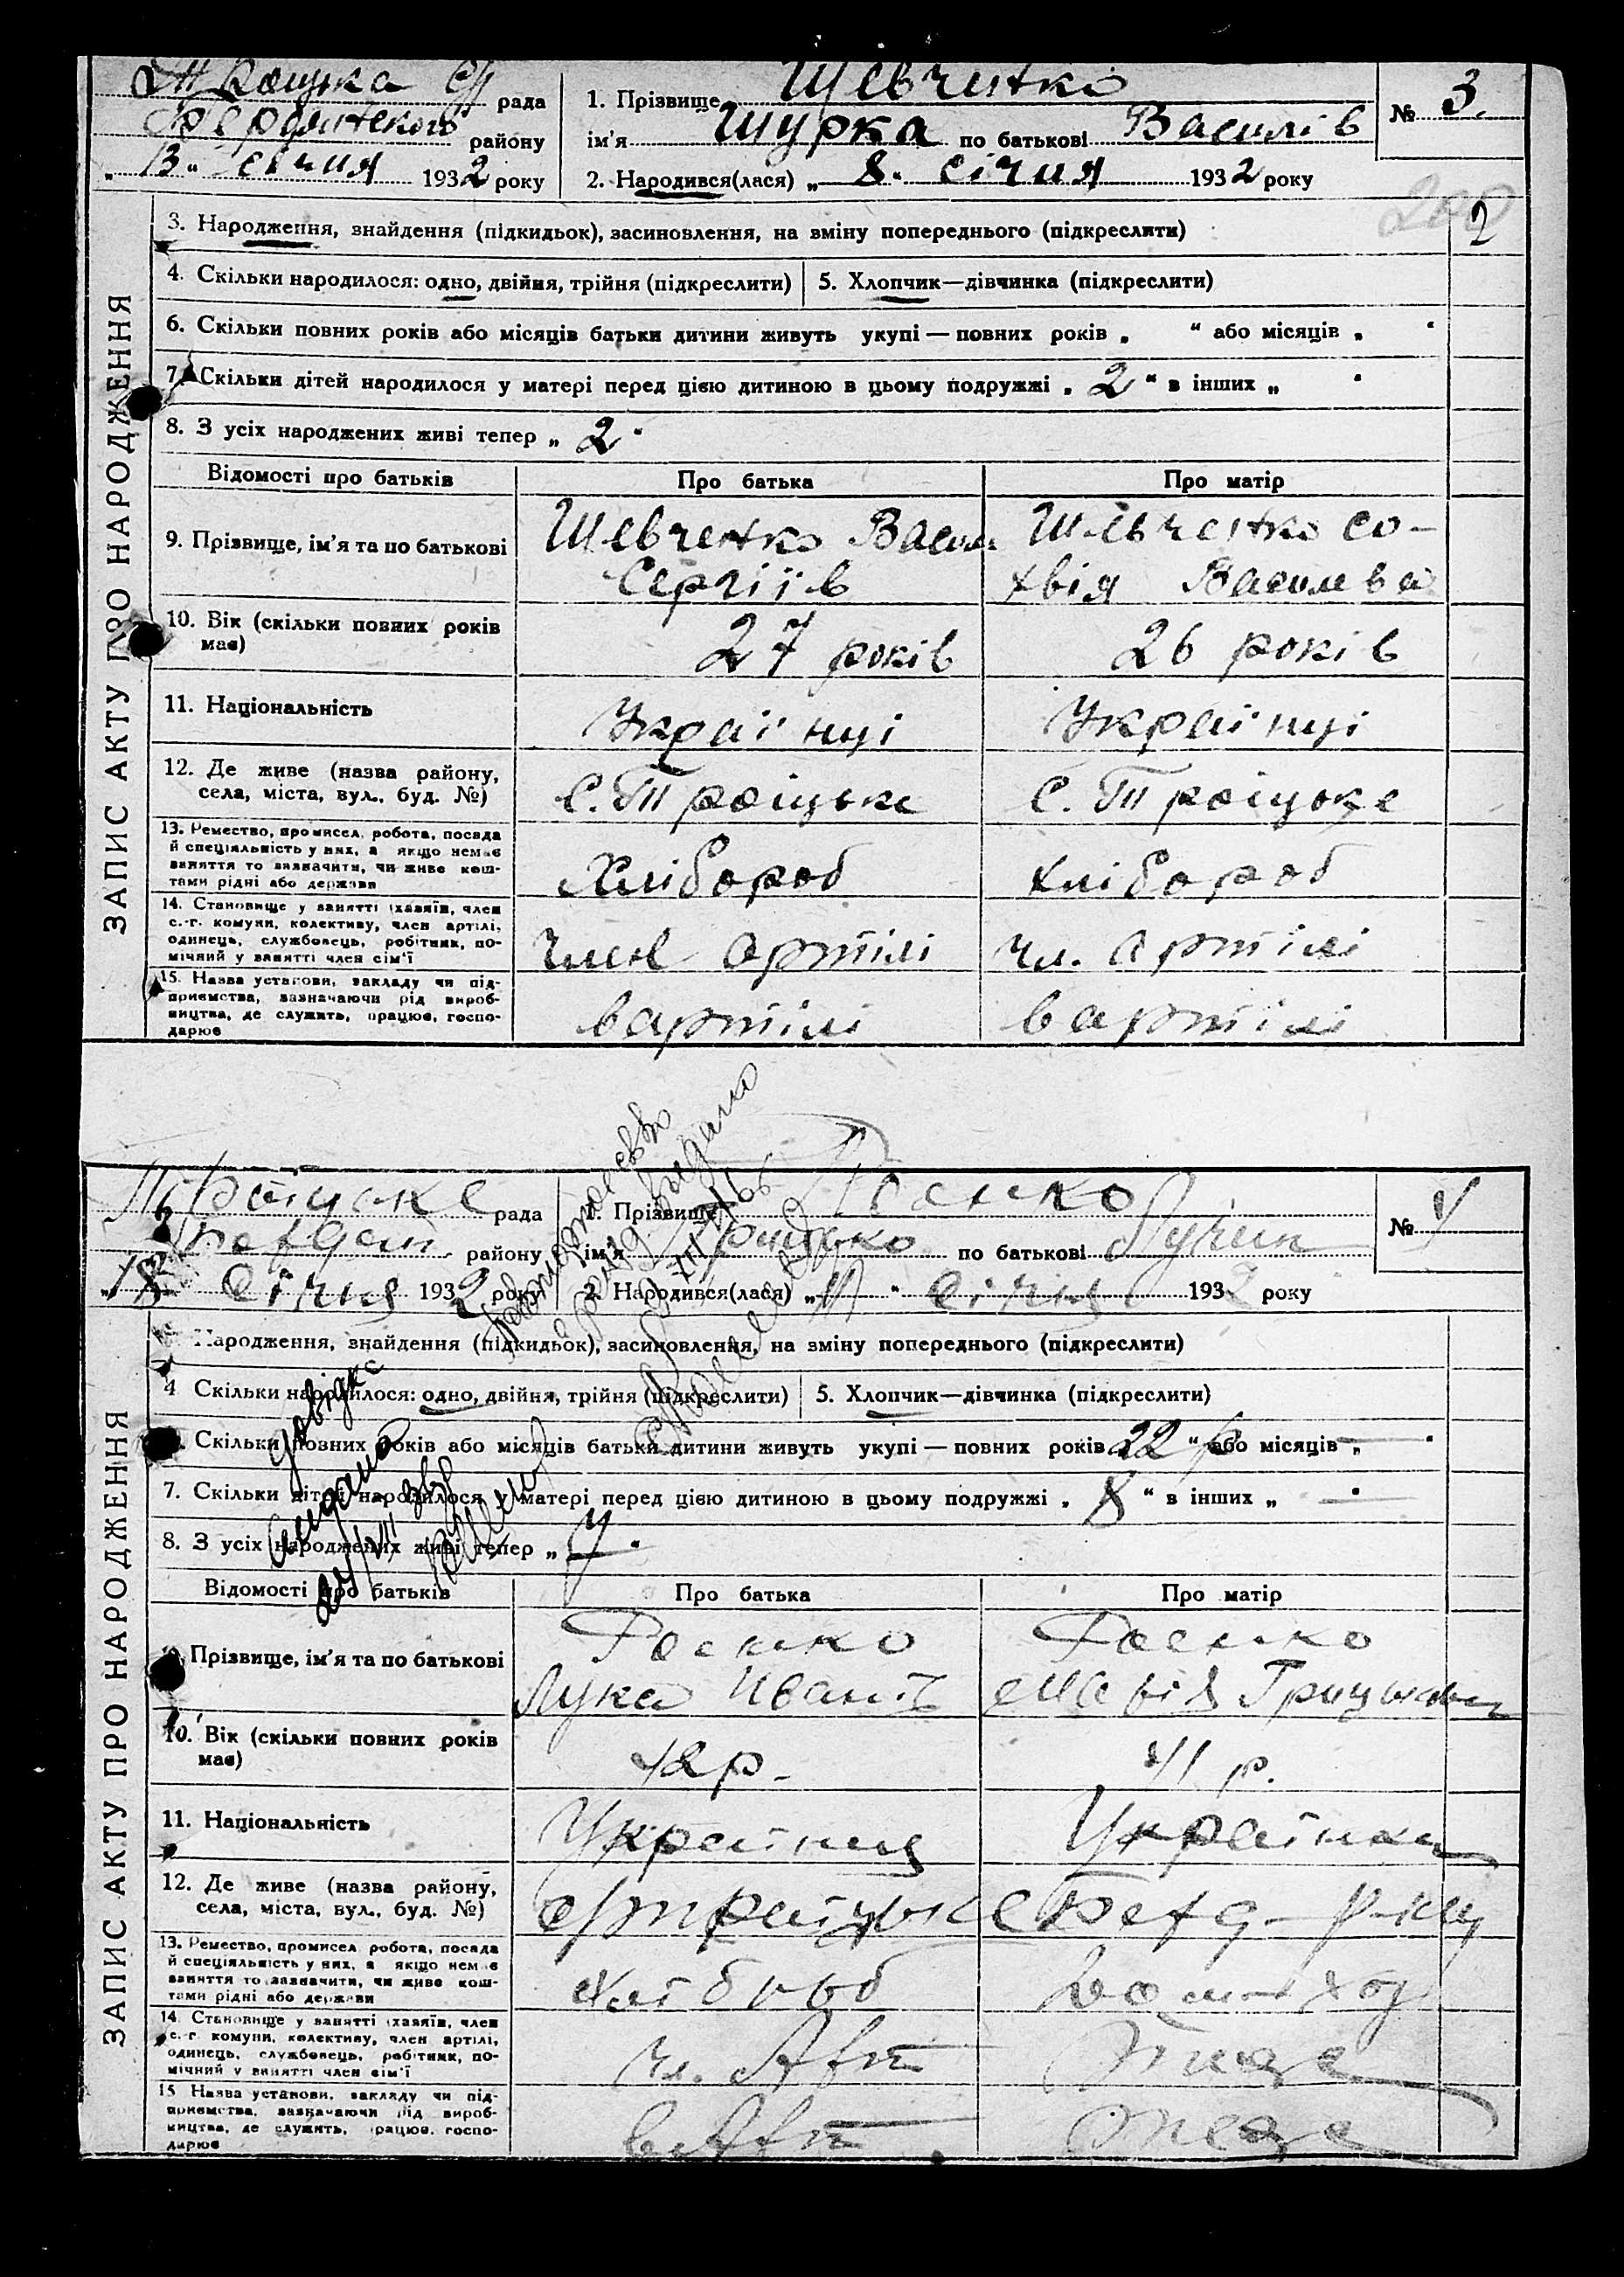 рада
району
"13" січня 1932 року
1. Прізвище Шевченко
ім'я Шурка по батькові Василів
2. Народився(лася) „8" січня 1932 року
№ 3.
200
2
ЗАПИС АКТУ ПРО НАРОДЖЕННЯ
3. Народження, знайдення (підкидьок), засиновлення, на зміну попереднього (підкреслити)
4. Скільки народилося: одно, двійня, трійня (підкреслити)
5. Хлопчик—дівчинка (підкреслити)
6. Скільки повних років або місяців батьки дитини живуть укупі — повних років „ “ або місяців „ “
7. Скільки дітей народилося у матері перед цією дитиною в цьому подружжі „ 2 “ в інших „ “
8. З усіх народжених живі тепер „ 2 “
Відомості про батьків Про батька Про матір
9. Прізвище, ім'я та по батькові
Шевченко Василь
Сергіїв
Шевченко Со-
хвія Васильва
10. Вік (скільки повних років
має)
27 років
26 років
11. Національність
Українці
Українці
12. Де живе (назва району,
села, міста, вул., буд. №)
С. Троіцьке
С. Троіцьке
13. Ремество, промисел, робота, посада
й спеціяльність у них, а якщо немає
заняття то зазначити, чи живе кош-
тами рідні або держави
Хлібороб
хлібороб
14. Становище у занятті (хазяїн, член
с.-г. комуни, колективу, член артілі,
одинець, службовець, робітник, по-
мічний у занятті член сім'ї
член артілі
чл. артілі
15. Назва установи, закладу чи під-
приємства, зазначаючи рід вироб-
ництва, де служить, працює, госпо-
дарює
в артілі
в артілі
Троіцьке рада
району
18 січня 1932 року
1. Прізвище
ім'я Грицько по батькові
2. Народився(лася) „ “ січня 1932 року
№ 4
ЗАПИС АКТУ ПРО НАРОДЖЕННЯ
Народження, знайдення (підкидьок), засиновлення, на зміну попереднього (підкреслити)
4 Скільки народилося: одно, двійня, трійня (підкреслити)
5. Хлопчик—дівчинка (підкреслити)
Скільки повних років або місяців батьки дитини живуть укупі — повних років 22 р “ або місяців „ — “
7. Скільки дітей народилося у матері перед цією дитиною в цьому подружжі „ 8 “ в інших „ — “
8. З усіх народжених живі тепер „ “
Відомості про батьків Про батька Про матір
Прізвище, ім'я та по батькові
Лука Иванів
Марія
10. Вік (скільки повних років
має)
42 р.
41 р.
11. Національність
Українця
Українка
12. Де живе (назва району,
села, міста, вул., буд. №)
13. Ремество, промисел, робота, посада
й спеціяльність у них, а якщо немає
заняття то зазначити, чи живе кош-
тами рідні або держави
хлібороб
14. Становище у занятті (хазяїн, член
с.-г. комуни, колективу, член артілі,
одинець, службовець, робітник, по-
мічний у занятті член сім'ї
чл. Арт
15. Назва установи, закладу чи під-
приємства, зазначаючи рід вироб-
ництва, де служить, працює, госпо-
дарює
в Арт